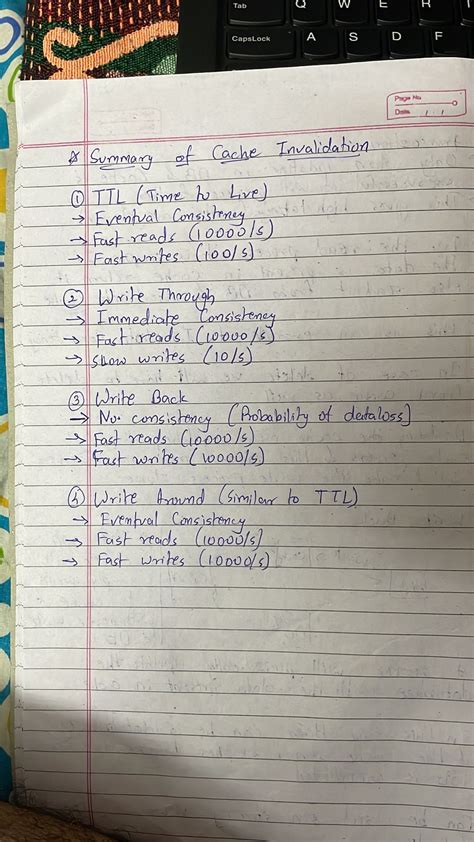 Tab Q W E R
CapsLock A S D F
Page No.
Date / /
Summary of Cache Invalidation
① TTL (Time to Live)
→ Eventual Consistency
→ Fast reads (10000/s)
→ Fast writes (100/s)
② Write Through
→ Immediate Consistency
→ Fast reads (10000/s)
→ Slow writes (10/s)
③ Write Back
→ No. consistency (Probability of dataloss]
→ Fast reads (10000/s)
→ Fast writes (10000/s)
④ Write Around (Similar to TTL)
→ Eventual Consistency
→ Fast reads (10000/s]
→ Fast writes (10000/s)